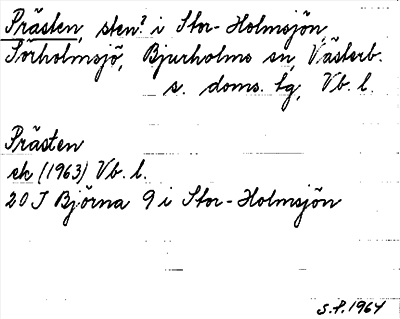 Prästen, sten? i Stor-Holmsjön
Sörholmsjö, Bjurholms sn, Västerb.
s. doms. tg, Vb. l.
Prästen
ek (1963) Vb. l.
20 J Björna 9 i Stor-Holmsjön
S.P. 1964